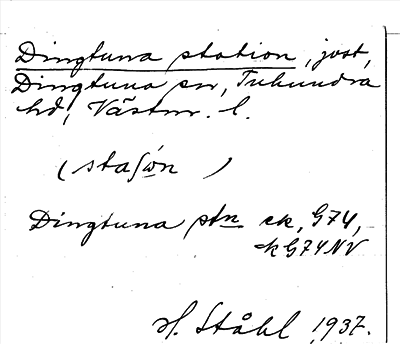 Dingtuna station, jvst,
Dingtuna sn, Tuhundra
hd, Västm. l.
(staʃὼn )
Dingtuna stn ek, G74,
ek G74NV
H. Ståhl 1937.